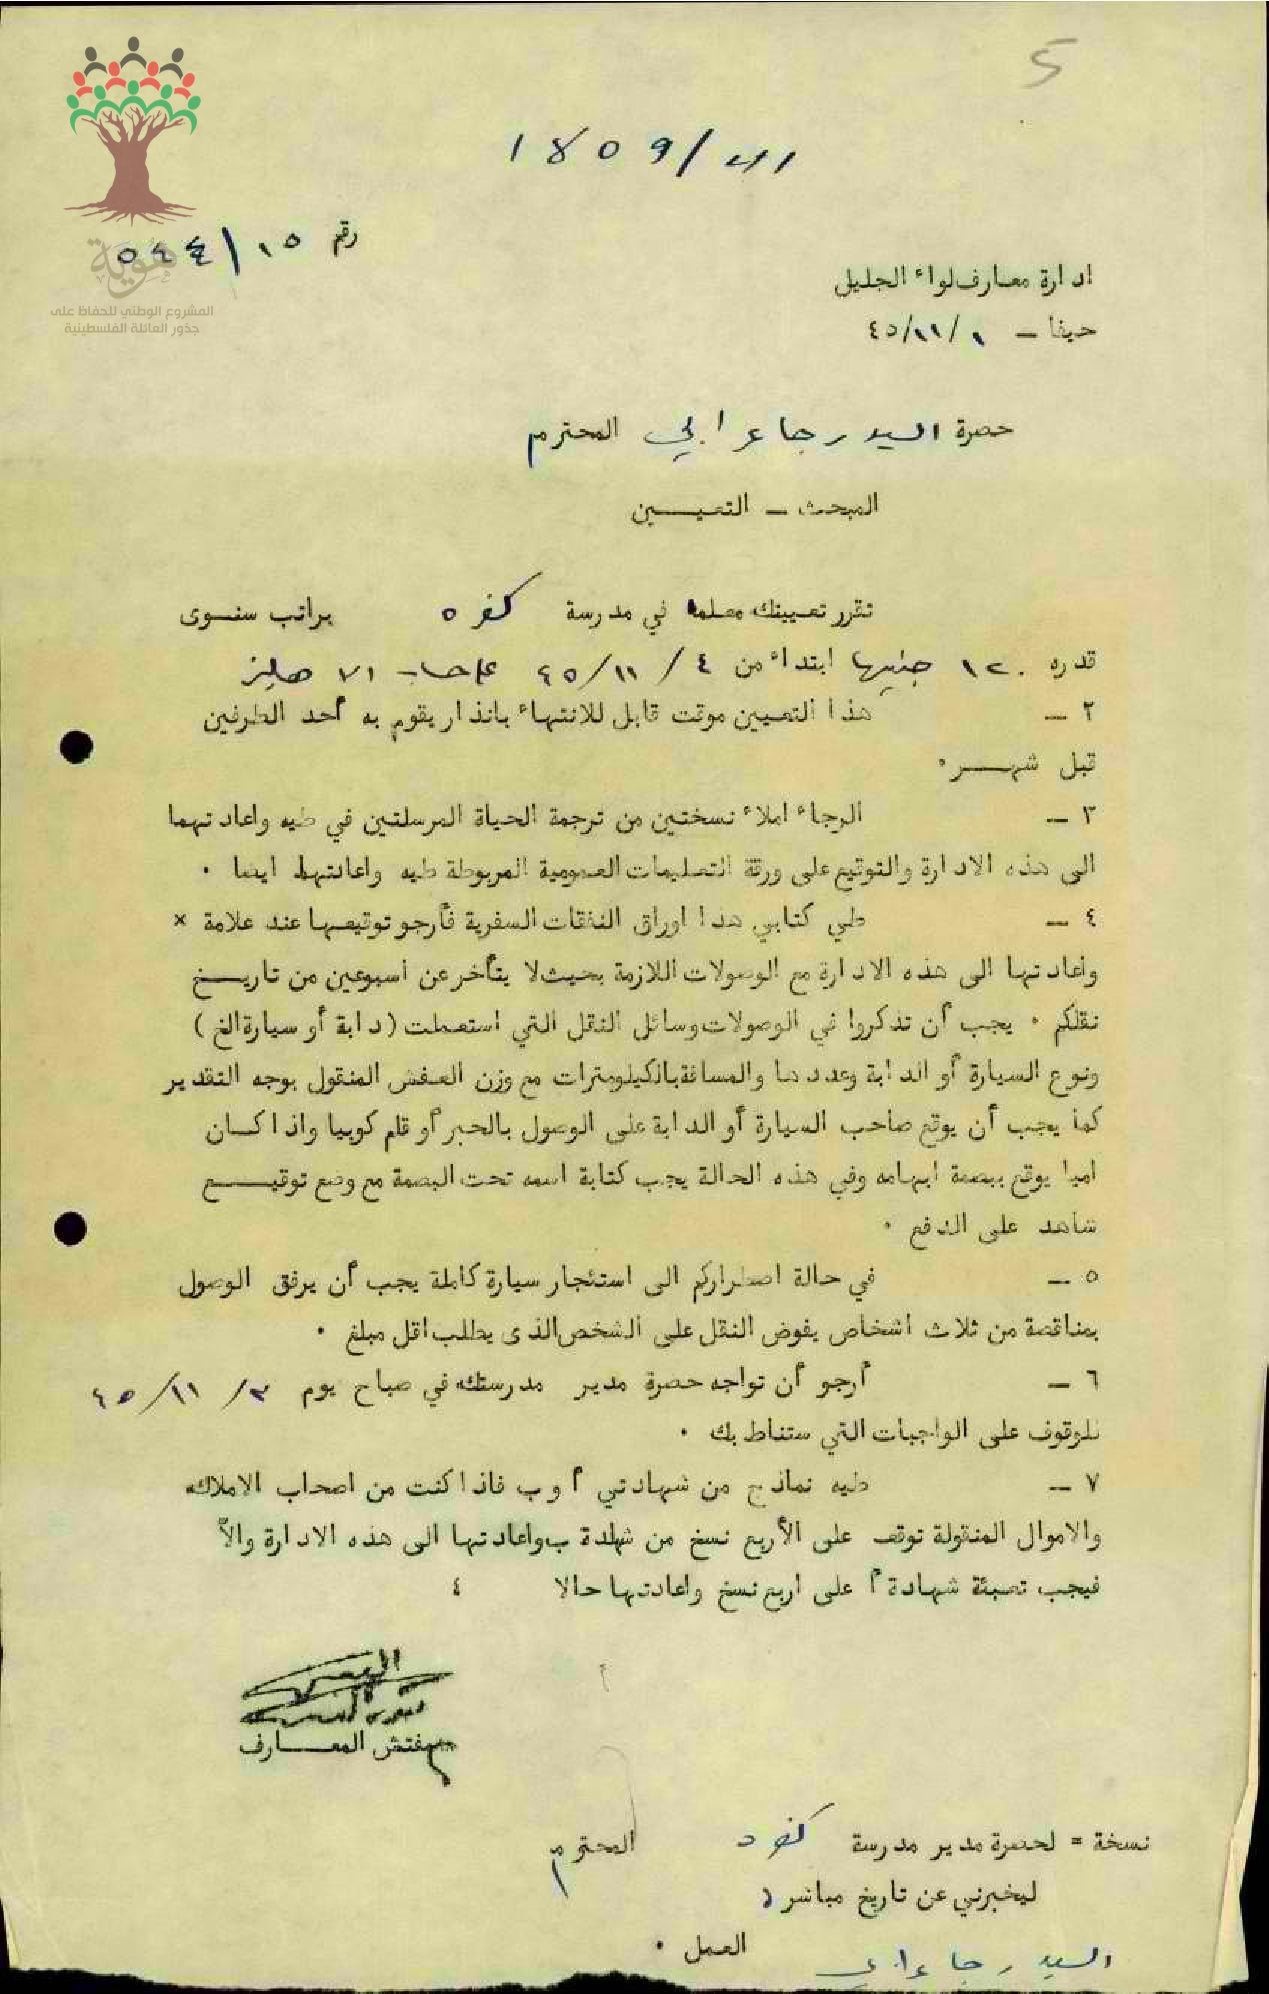 رقم ١٥/٥٤٤
هوية
المشروع الوطني للحفاظ على
جذور العائلة الفلسطينية
ادارة معارف لواء الجليل
حيفا – ١/١١/٤٥
حضرة السيد رجا عرابي المحترم
المبحث – التعيين
تقرر تعيينك معلما في مدرسة براتب سنوى
قدره ١٢٠ جنيها ابتداء من ٤/١١/٤٥
٢ – هذا التعيين موقت قابل للانتهاء بانذار يقوم به أحد الطرفين
قبل شهر ٠
٣ – الرجاء املاء نسختين من ترجمة الحياة المرسلتين في طيه واعادتهما
الى هذه الادارة والتوقيع على ورقة التعليمات العمومية المربوطة طيه واعادتها ايضا ٠
٤ – طي كتابي هذا اوراق النفقات السفرية فأرجو توقيعها عند علامة ×
واعادتها الى هذه الادارة مع الوصولات اللازمة بحيث لا يتأخر عن اسبوعين من تاريخ
نقلكم ٠ يجب أن تذكروا في الوصولات وسائل النقل التي استعملت (دابة أو سيارة الخ)
ونوع السيارة أو الدابة وعددها والمسافة بالكيلومترات مع وزن العفش المنقول بوجه التقدير
كما يجب أن يوقع صاحب السيارة أو الدابة على الوصول بالحبر أو قلم كوبيا واذا كان
اميا يوقع ببصمة ابهامه وفي هذه الحالة يجب كتابة اسمه تحت البصمة مع وضع توقيع
شاهد على الدفع ٠
٥ – في حالة اضطراركم الى استئجار سيارة كاملة يجب أن يرفق الوصول
بمناقصة من ثلاث اشخاص يفوض النقل على الشخص الذى يطلب اقل مبلغ ٠
٦ – أرجو أن تواجه حضرة مدير مدرستك في صباح يوم ٣/١١/٤٥
للوقوف على الواجبات التي ستناط بك ٠
٧ – طيه نماذج من شهادتي أ و ب فاذا كنت من اصحاب الاملاك
والاموال المنقولة توقف على الأربع نسخ من شهادة ب واعادتها الى هذه الادارة والاّ
فيجب تعبئة شهادة أ على اربع نسخ واعادتها حالا ٤
مفتش المعارف
نسخة = لحضرة مدير مدرسة المحترم
ليخبرني عن تاريخ مباشرة
السيد رجا عرابي العمل ٠